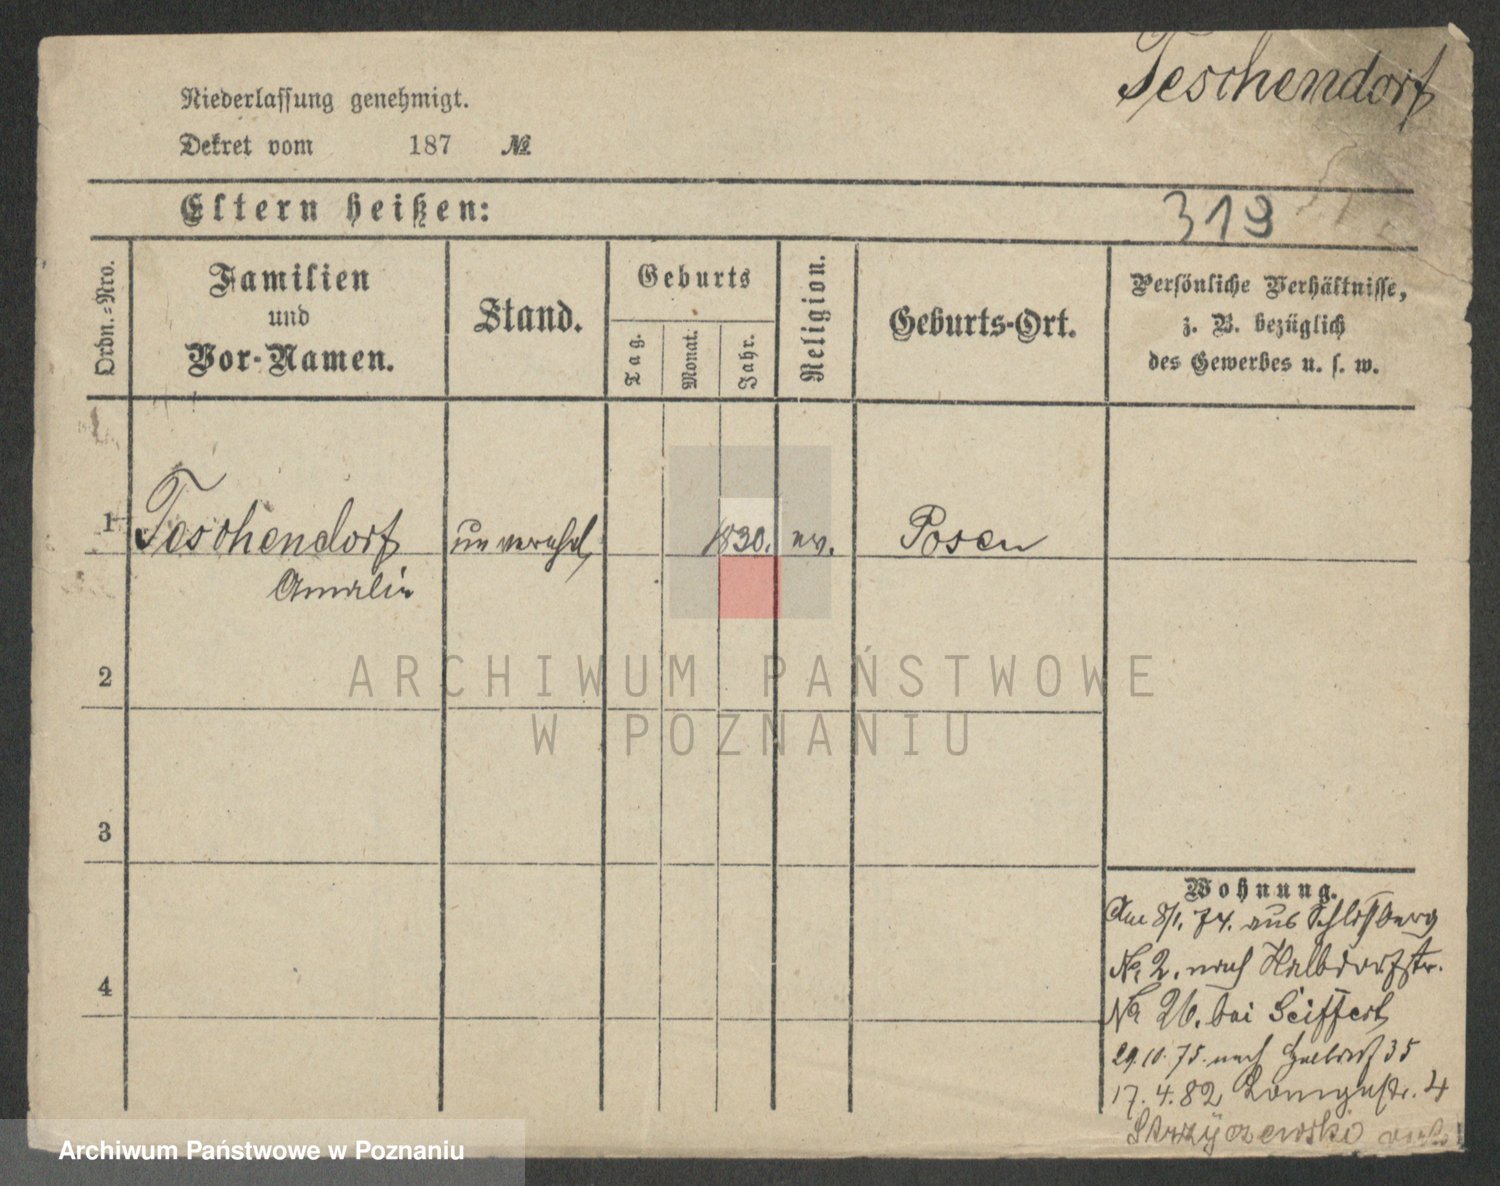 Teschendorf
Niederlassung genehmigt.
Dekret vom 187 №
Eltern heißen:
319
Ordn.-Nro.
Familien
und
Vor-Namen.
Stand.
Geburts
Tag.
Monat.
Jahr.
Religion.
Geburts-Ort.
Persönliche Verhältnisse,
z. B. bezüglich
des Gewerbes u. s. w.
1 Teschendorf unverehel. 1830. ev. Posen
Amalie
2
ARCHIWUM PAŃSTWOWE
W POZNANIU
3
Wohnung.
Am 8/1. 74. aus Schloßberg
No. 2. nach Halbdorfstr.
4
No 26. bei Seiffert
29.10.75. nach Halbdorf 35
17.4.82 Langestr. 4
Strzyczewski
Archiwum Państwowe w Poznaniu